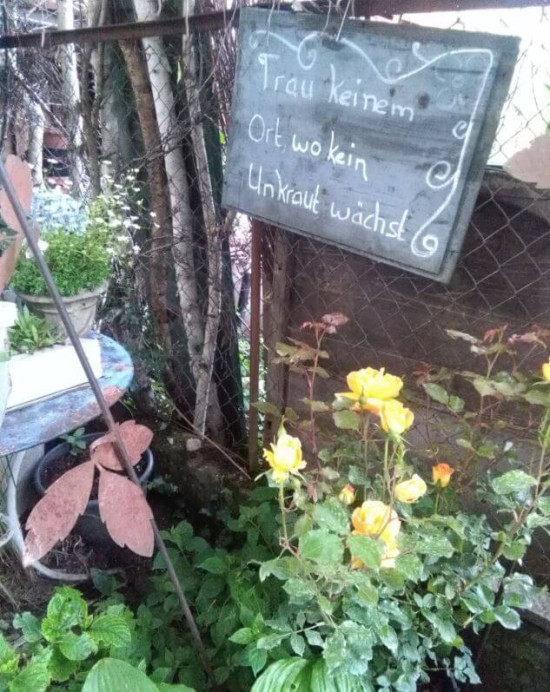 Trau keinem
Ort, wo kein
Unkraut wächst